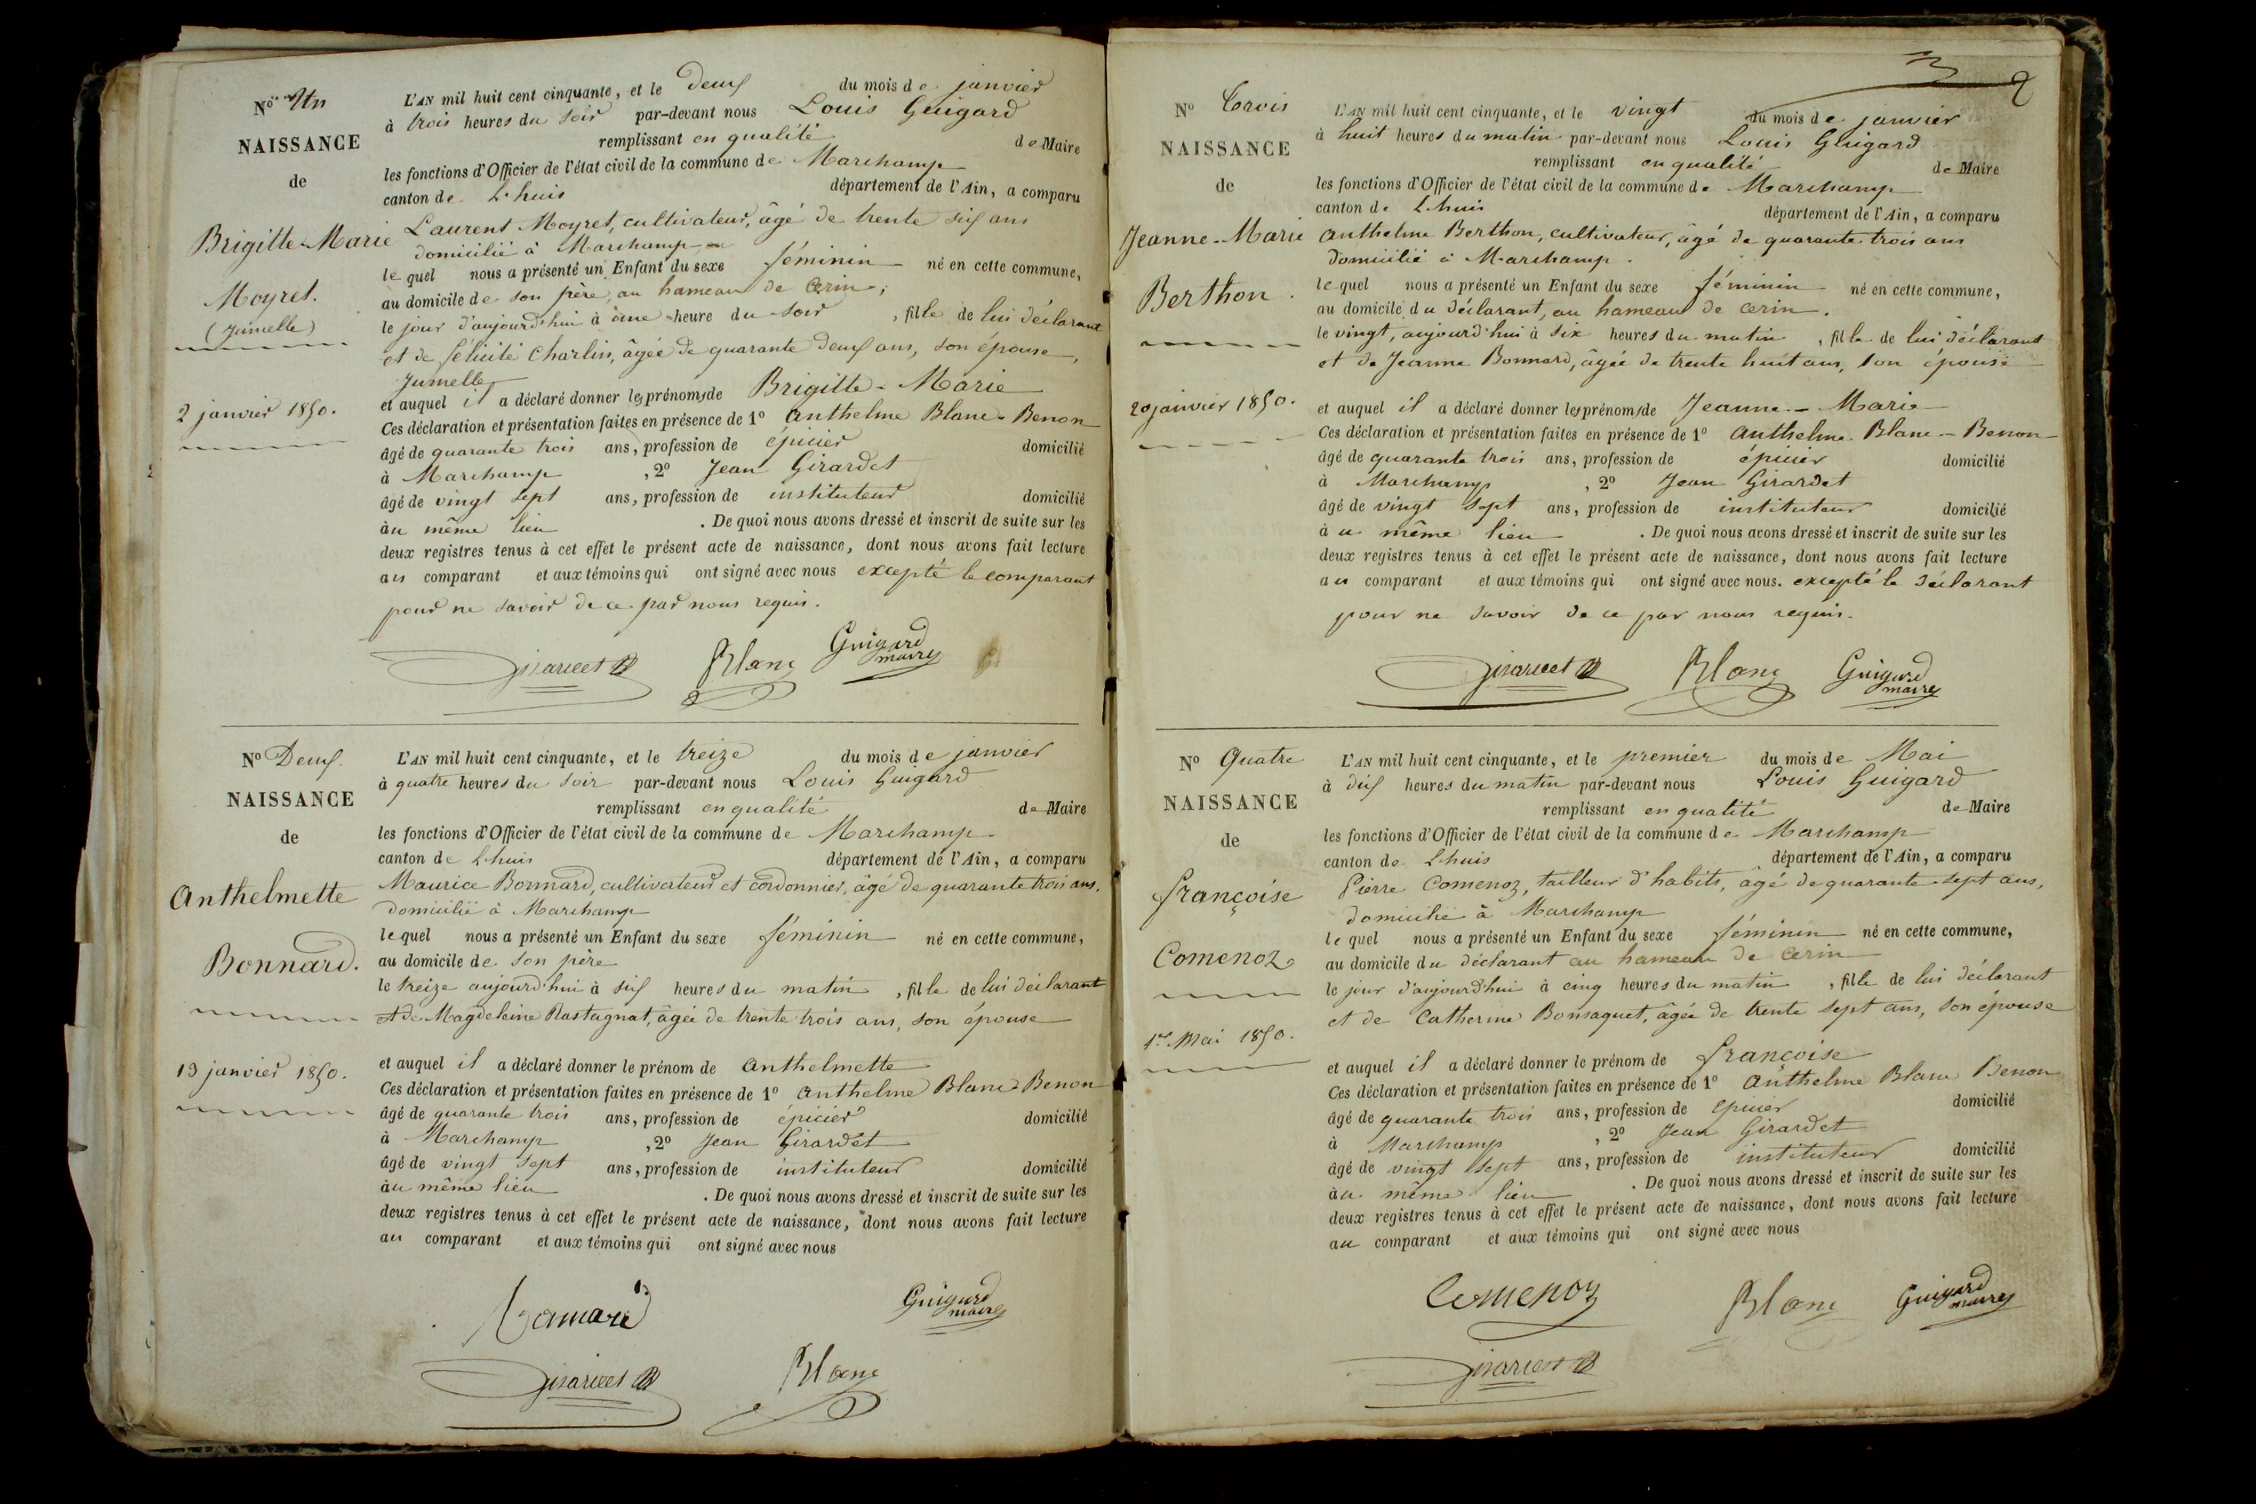 No Un
NAISSANCE
de
Brigitte-Marie
Moyret.
(Jumelle)
2 janvier 1850.
L'AN mil huit cent cinquante, et le deux du mois de janvier
à trois heures du soir par-devant nous Louis Guigard
remplissant en qualité de Maire
les fonctions d'Officier de l'état civil de la commune de Marchamp
canton de Lhuis département de l'Ain, a comparu
Laurent Moyret, cultivateur, âgé de trente six ans
domicilié à Marchamp
lequel nous a présenté un Enfant du sexe féminin né en cette commune,
au domicile de son père, au hameau de Cerin,
le jour d'aujourd'hui à une heure du soir, fille de lui déclarant
et de Félicité Charlin, âgée de quarante deux ans, son épouse,
Jumelle
et auquel il a déclaré donner les prénoms de Brigitte-Marie
Ces déclaration et présentation faites en présence de 1o Anthelme Blanc-Benon
âgé de quarante trois ans, profession de épicier domicilié
à Marchamp, 2o Jean Girardet
âgé de vingt sept ans, profession de instituteur domicilié
àu même lieu. De quoi nous avons dressé et inscrit de suite sur les
deux registres tenus à cet effet le présent acte de naissance, dont nous avons fait lecture
au comparant et aux témoins qui ont signé avec nous excepté le comparant
pour ne savoir de ce par nous requis.
Girardet Blanc Guigard
maire
No Deux.
NAISSANCE
de
Anthelmette
Bonnard.
13 janvier 1850.
L'AN mil huit cent cinquante, et le treize du mois de janvier
à quatre heures du soir par-devant nous Louis Guigard
remplissant en qualité de Maire
les fonctions d'Officier de l'état civil de la commune de Marchamp
canton de Lhuis département de l'Ain, a comparu
Maurice Bonnard, cultivateur et cordonnier, âgé de quarante trois ans,
domicilié à Marchamp
lequel nous a présenté un Enfant du sexe féminin né en cette commune,
au domicile de son père
le treize aujourd'hui à six heures du matin, fille de lui déclarant
et de Magdeleine Rastagnat, âgée de trente trois ans, son épouse
et auquel il a déclaré donner le prénom de Anthelmette
Ces déclaration et présentation faites en présence de 1o Anthelme Blanc-Benon
âgé de quarante trois ans, profession de épicier domicilié
à Marchamp, 2o Jean Girardet
âgé de vingt sept ans, profession de instituteur domicilié
àu même lieu. De quoi nous avons dressé et inscrit de suite sur les
deux registres tenus à cet effet le présent acte de naissance, dont nous avons fait lecture
au comparant et aux témoins qui ont signé avec nous
Guigard
maire
Girardet Blanc
2
No Trois
NAISSANCE
de
Jeanne-Marie
Berthon.
20 janvier 1850.
L'AN mil huit cent cinquante, et le vingt du mois de janvier
à huit heures du matin par-devant nous Louis Guigard
remplissant en qualité de Maire
les fonctions d'Officier de l'état civil de la commune de Marchamp
canton de Lhuis département de l'Ain, a comparu
Anthelme Berthon, cultivateur, âgé de quarante trois ans
domicilié à Marchamp.
lequel nous a présenté un Enfant du sexe féminin né en cette commune,
au domicile du déclarant, au hameau de Cerin.
le vingt, aujourd'hui à six heures du matin, fille de lui déclarant
et de Jeanne Bonnard, âgée de trente huit ans, son épouse
et auquel il a déclaré donner les prénoms de Jeanne-Marie
Ces déclaration et présentation faites en présence de 1o Anthelme Blanc-Benon
âgé de quarante trois ans, profession de épicier domicilié
à Marchamp, 2o Jean Girardet
âgé de vingt sept ans, profession de instituteur domicilié
àu même lieu. De quoi nous avons dressé et inscrit de suite sur les
deux registres tenus à cet effet le présent acte de naissance, dont nous avons fait lecture
au comparant et aux témoins qui ont signé avec nous. excepté le déclarant
pour ne savoir de ce par nous requis.
Girardet Blanc Guigard
maire
No Quatre
NAISSANCE
de
Françoise
Comenoz
1er Mai 1850.
L'AN mil huit cent cinquante, et le premier du mois de Mai
à dix heures du matin par-devant nous Louis Guigard
remplissant en qualité de Maire
les fonctions d'Officier de l'état civil de la commune de Marchamp
canton de Lhuis département de l'Ain, a comparu
Pierre Comenoz, tailleur d'habits, âgé de quarante-sept ans,
domicilié à Marchamp
lequel nous a présenté un Enfant du sexe féminin né en cette commune,
au domicile du déclarant au hameau de Cerin
le jour d'aujourd'hui à cinq heures du matin, fille de lui déclarant
et de Catherine Bonsaquet, âgée de trente sept ans, son épouse
et auquel il a déclaré donner le prénom de Françoise
Ces déclaration et présentation faites en présence de 1o Anthelme Blanc Benon
âgé de quarante trois ans, profession de épicier domicilié
à Marchamp, 2o Jean Girardet
âgé de vingt sept ans, profession de instituteur domicilié
àu même lieu. De quoi nous avons dressé et inscrit de suite sur les
deux registres tenus à cet effet le présent acte de naissance, dont nous avons fait lecture
au comparant et aux témoins qui ont signé avec nous
Comenoz Blanc Guigard
maire
Girardet